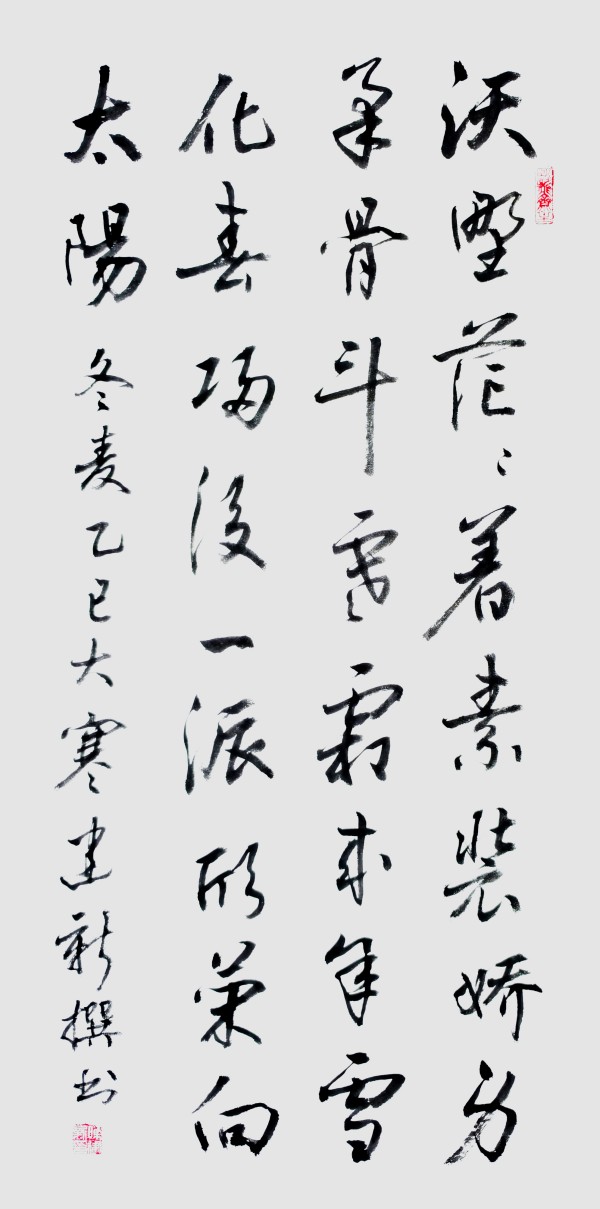 沃野茫々着素裝娇身
柔骨斗寒霜来年雪
化春归後一派欣荣向
太陽 冬麦乙巳大寒建新撰书